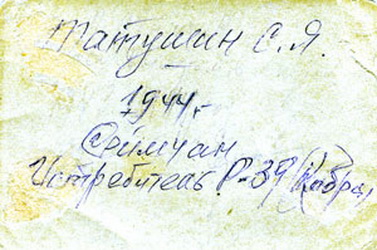 Татушин С.Я.
1944г.
Сеймчан
Истребитель Р-39 (Кобра)